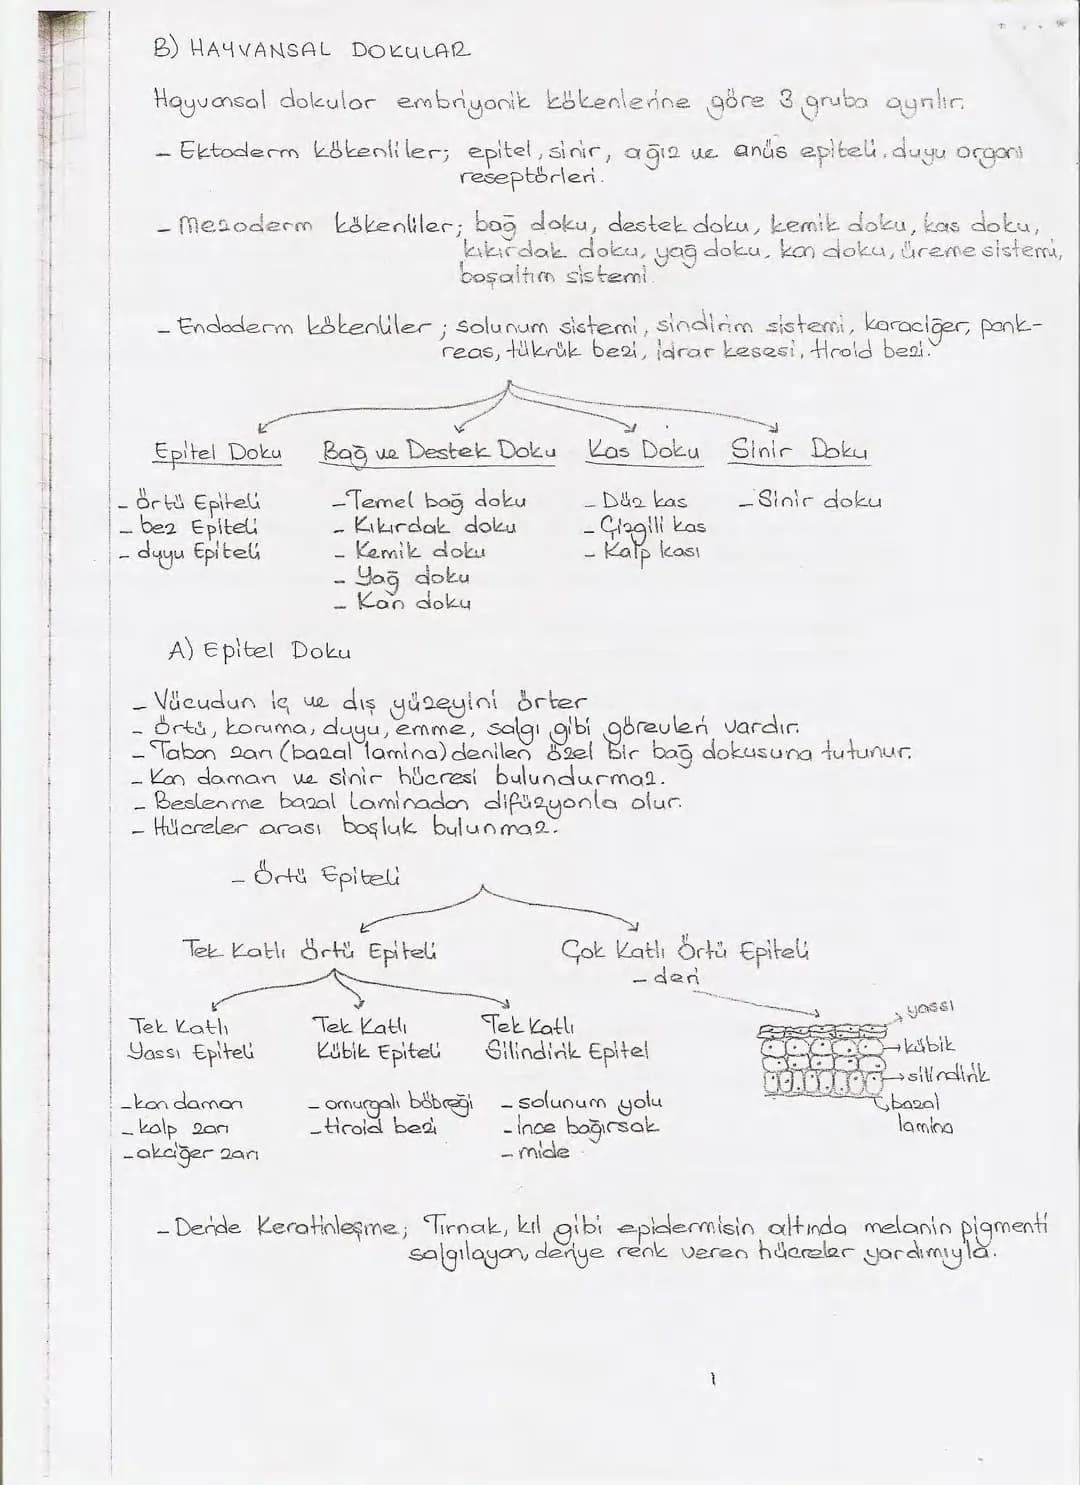 B) HAYVANSAL DOKULAR
Hayvansal dokular embriyonik kökenlerine göre 3 gruba ayrılır.
- Ektoderm kökenliler; epitel, sinir, ağız ve anüs epiteli, duyu organı
reseptörleri.
- Mezoderm kökenliler; bağ doku, destek doku, kemik doku, kas doku,
kıkırdak doku, yağ doku, kan doku, üreme sistemi,
boşaltım sistemi.
- Endoderm kökenliler; solunum sistemi, sindirim sistemi, karaciğer, pank-
reas, tükrük bezi, idrar kesesi, tiroid bezi.
Epitel Doku Bağ ve Destek Doku Kas Doku Sinir Doku
- örtü Epiteli - Temel bağ doku - Düz kas - Sinir doku
- bez Epiteli - Kıkırdak doku - Çizgili kas
- duyu Epiteli - Kemik doku - Kalp kası
- Yağ doku
- Kan doku
A) Epitel Doku
- Vücudun iç ve dış yüzeyini örter
- örtü, koruma, duyu, emme, salgı gibi görevleri vardır.
- Taban zarı (bazal lamina) denilen özel bir bağ dokusuna tutunur.
- Kan damarı ve sinir hücresi bulundurmaz.
- Beslenme bazal laminadan difüzyonla olur.
- Hücreler arası boşluk bulunmaz.
- Örtü Epiteli
Tek Katlı Örtü Epiteli Çok Katlı Örtü Epiteli
- deri
Tek Katlı Tek Katlı Tek Katlı yassı
Yassı Epiteli Kübik Epiteli Silindirik Epitel kübik
silindirik
- kan damarı - omurgalı böbreği - solunum yolu bazal
- kalp zarı - tiroid bezi - ince bağırsak lamina
- akciğer zarı - mide
- Deride Keratinleşme; Tırnak, kıl gibi epidermisin altında melanin pigmenti
salgılayan, deriye renk veren hücreler yardımıyla.
1